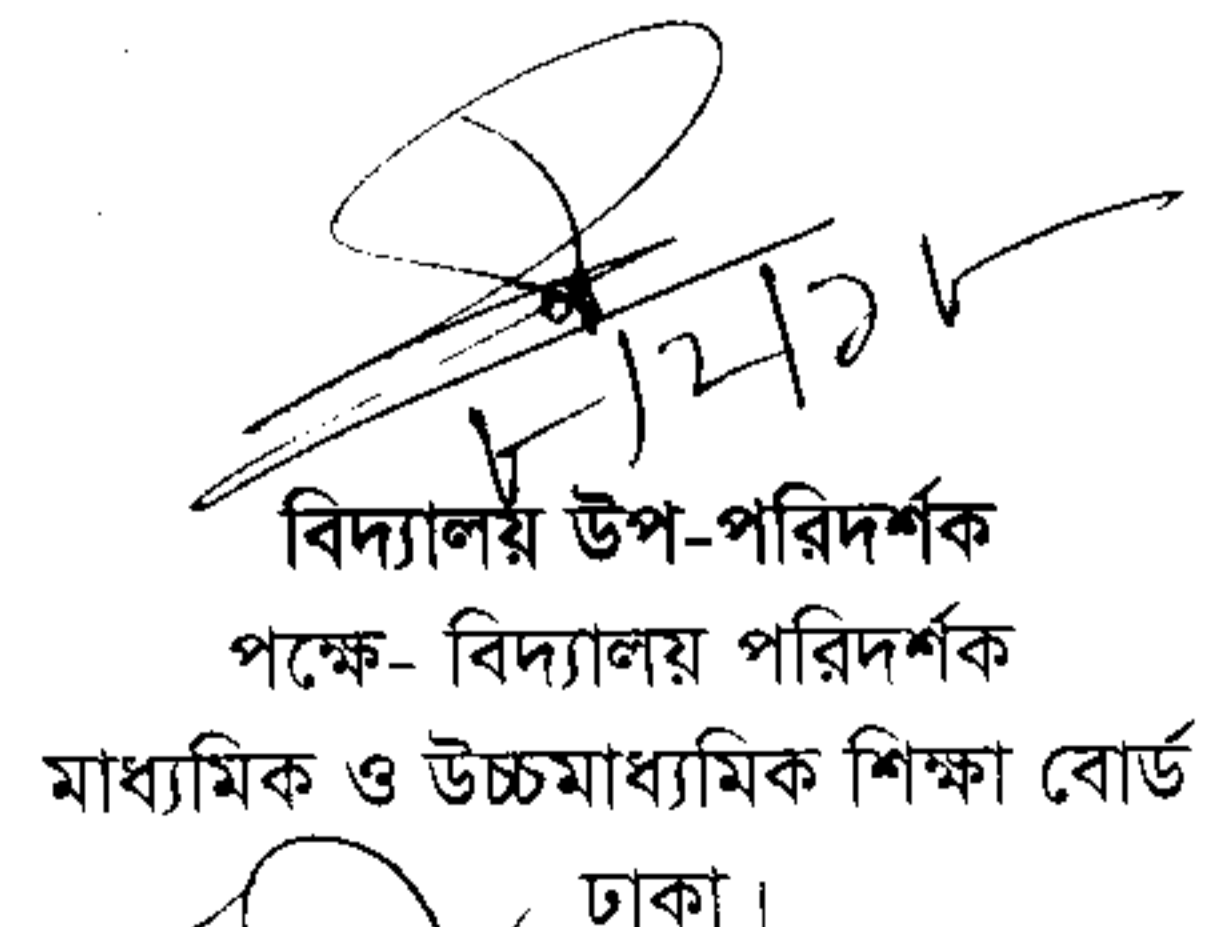 ৮/২/১৮
বিদ্যালয় উপ-পরিদর্শক
পক্ষে- বিদ্যালয় পরিদর্শক
মাধ্যমিক ও উচ্চমাধ্যমিক শিক্ষা বোর্ড
ঢাকা।